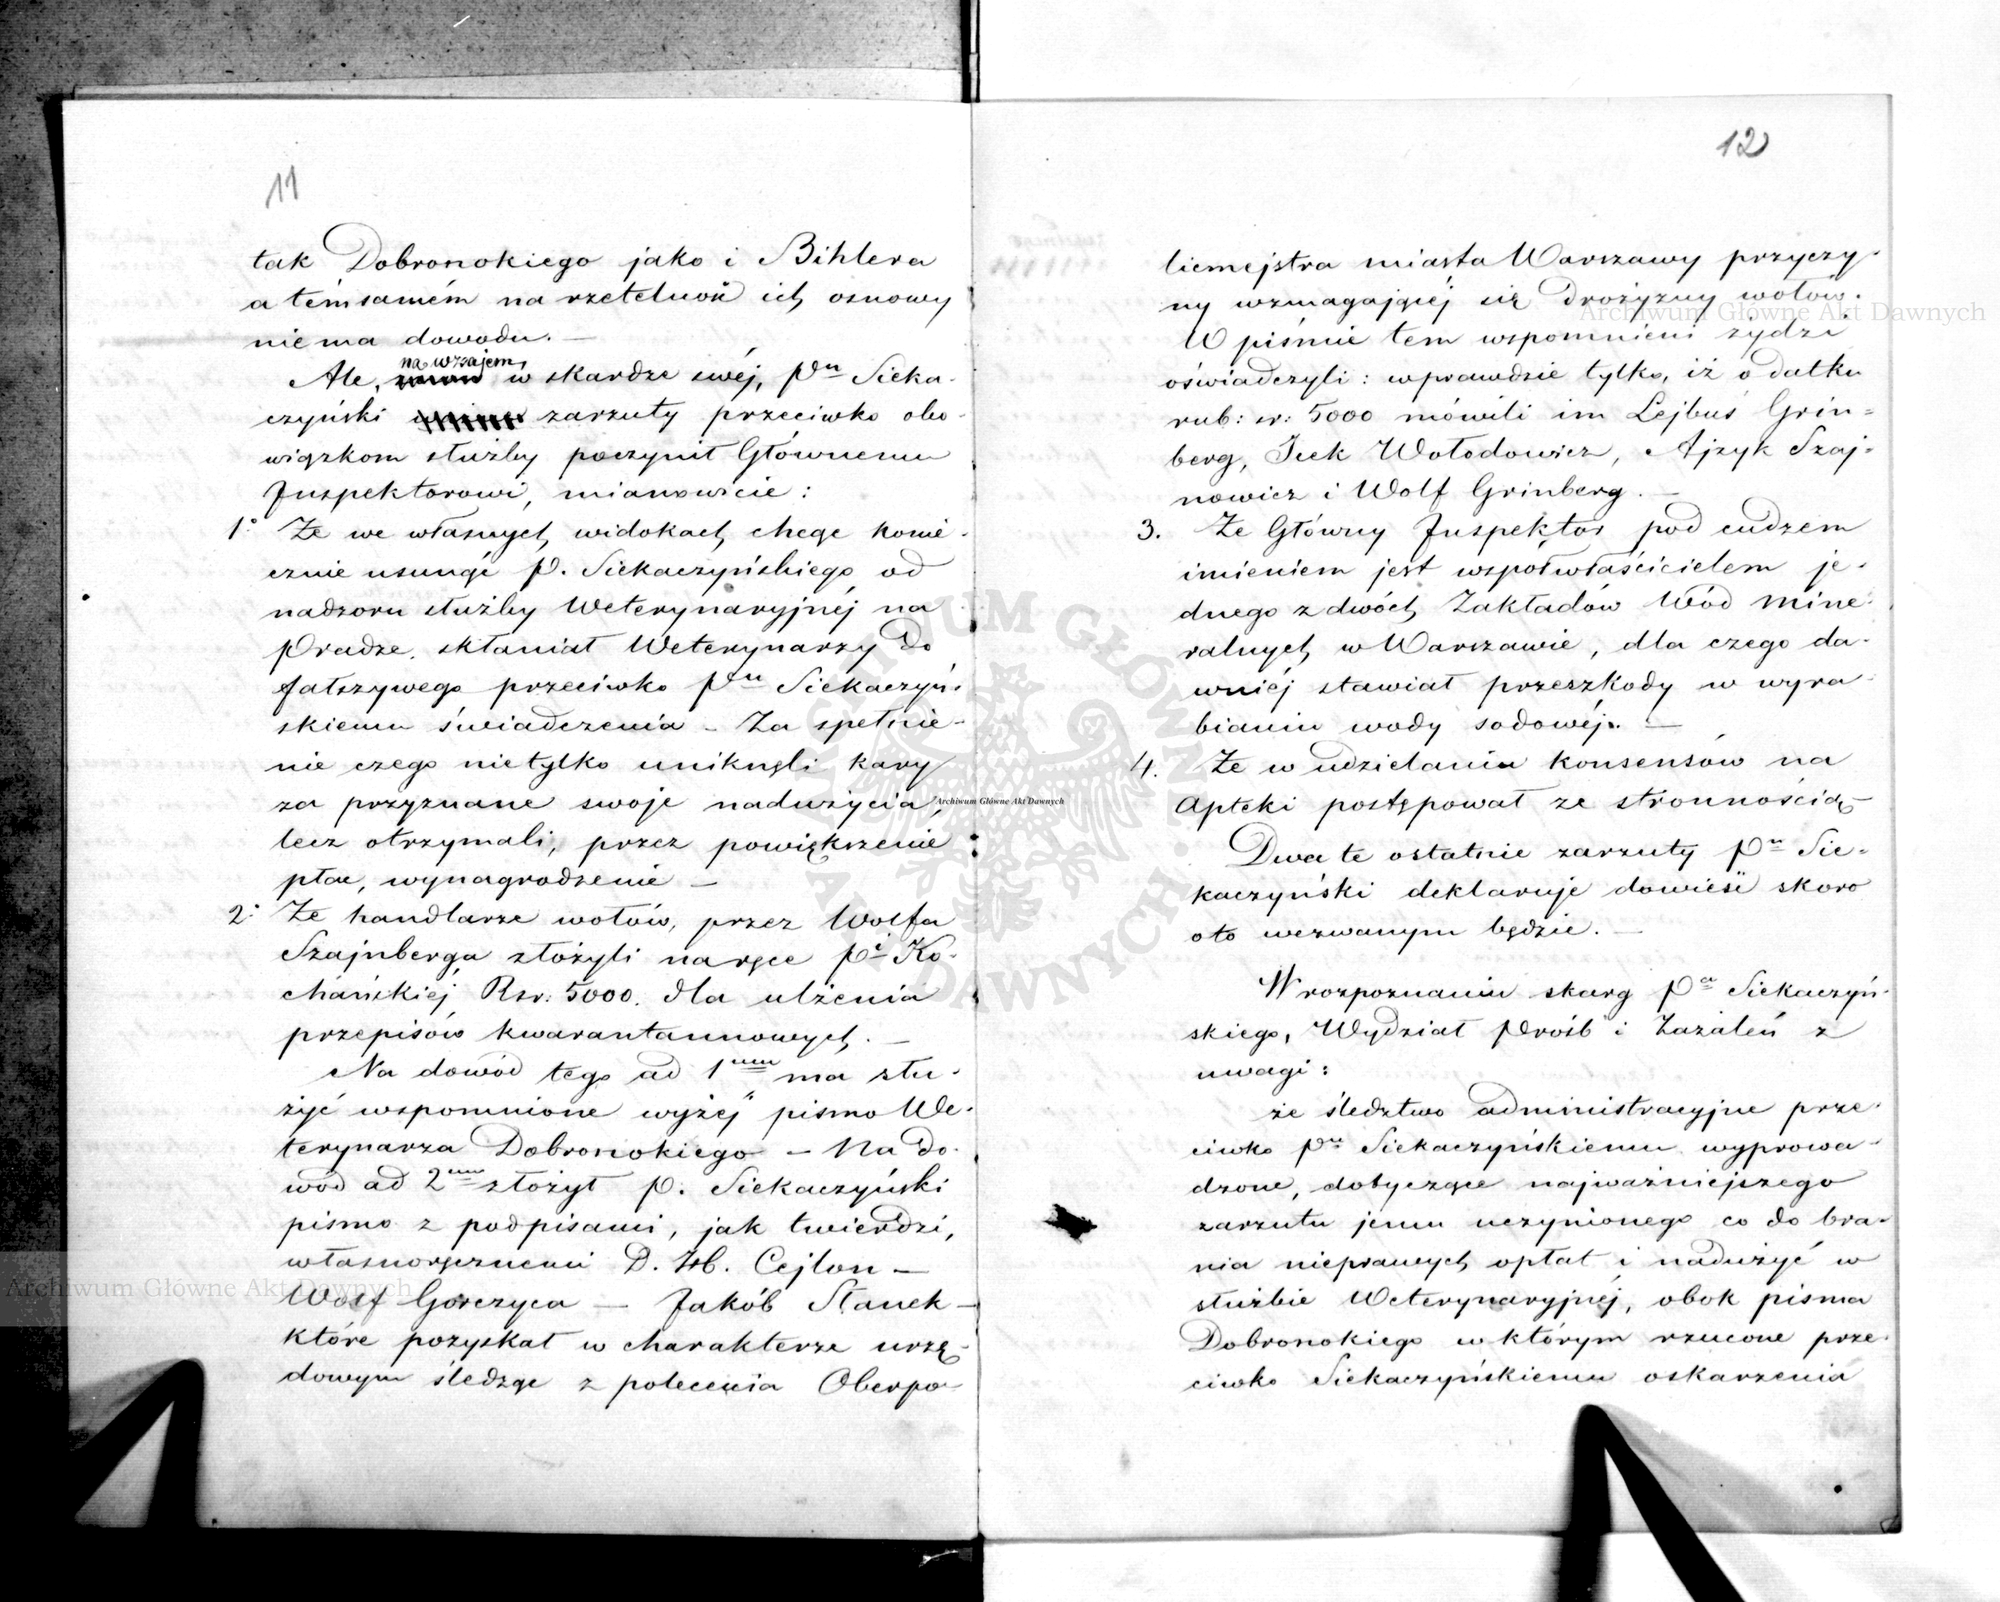 11
tak Dobronokiego jako i Bihlera
a témsamém na rzetelność ich osnowy
niema dowodu. —
na wzajem
Ale, w skardze swéj, Pn Sieka-
czyński zarzuty przeciwko obo-
wiązkom służby poczynił Głównemu
Inspektorowi, mianowicie:
1° Że we własnych widokach, chcąc konie-
cznie usunąć P. Siekaczyńskiego od
nadzoru służby Weterynaryjnéj na
Pradze, skłaniał Weterynarzy do
fałszywego przeciwko Pnu Siekaczyń-
skiemu świadczenia — Za spełnie-
nie czego nietylko uniknęli kary
za przyznane swoje nadużycia,
lecz otrzymali, przez powiększenie
płac, wynagrodzenie —
2° Że handlarze wołów, przez Wolfa
Szajnberga złożyli na ręce Pi Ko-
chańskiéj Rsr: 5000. dla ulżenia
przepisów kwarantannowych. —
Na dowód tego ad 1mum ma słu-
żyć wspomnione wyżéj pismo We-
terynarza Dobronokiego — Na do-
wód ad 2um złożył P. Siekaczyński
pismo z podpisami, jak twierdzi,
własnoręcznemi D. Hb. Cejlon —
Wolf Gorczyca — Jakób Stanek —
które pozyskał w charakterze urzę-
dowym śledząc z polecenia Oberpo-
12
licmejstra miasta Warszawy przyczy-
ny wzmagającéj się drożyzny wołów.
W piśmie tem wspomnieni żydzi
oświadczyli: wprawdzie tylko, iż o datku
rub: sr: 5000 mówili im Lejbuś Grin=
berg, Icek Wołodowicz, Ajzyk Szaj-
nowicz i Wolf Grinberg. —
3. Że Główny Inspektor pod cudzem
imieniem jest współwłaścicielem je-
dnego z dwóch Zakładów Wód Mine-
ralnych w Warszawie, dla czego da-
wniéj stawiał przeszkody w wyra-
bianiu wody sodowéj. —
4. Że w udzielaniu konsensów na
Apteki postępował ze stronnością —
Dwa te ostatnie zarzuty Pn Sie-
kaczyński deklaruje dowieść skoro
oto wezwanym będzie. —
W rozpoznaniu skarg Pa Siekaczyń-
skiego, Wydział Próśb i Zażaleń z
uwagi:
że śledztwo administracyjne prze-
ciwko Pnu Siekaczyńskiemu wyprowa-
dzone, dotyczące najważniejszego
zarzutu jemu uczynionego co do bra-
nia nieprawych opłat i nadużyć w
służbie Weterynaryjnéj, obok pisma
Dobronokiego w którym rzucone prze-
ciwko Siekaczyńskiemu oskarzenia
Archiwum Główne Akt Dawnych
Archiwum Główne Akt Dawnych
Archiwum Główne Akt Dawnych
ARCHIWUM GŁÓWNE AKT DAWNYCH